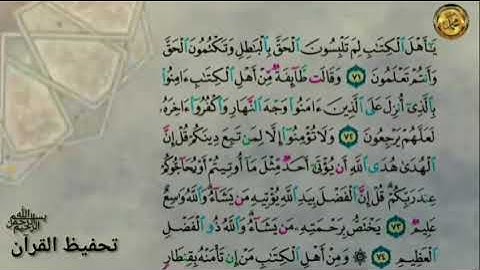 يَٰٓأَهْلَ ٱلْكِتَٰبِ لِمَ تَلْبِسُونَ ٱلْحَقَّ بِٱلْبَٰطِلِ وَتَكْتُمُونَ ٱلْحَقَّ
وَأَنتُمْ تَعْلَمُونَ ٧١ وَقَالَت طَّآئِفَةٌ مِّنْ أَهْلِ ٱلْكِتَٰبِ ءَامِنُوا۟
بِٱلَّذِىٓ أُنزِلَ عَلَى ٱلَّذِينَ ءَامَنُوا۟ وَجْهَ ٱلنَّهَارِ وَٱكْفُرُوٓا۟ ءَاخِرَهُۥ
لَعَلَّهُمْ يَرْجِعُونَ ٧٢ وَلَا تُؤْمِنُوٓا۟ إِلَّا لِمَن تَبِعَ دِينَكُمْ قُلْ إِنَّ
ٱلْهُدَىٰ هُدَى ٱللَّهِ أَن يُؤْتَىٰٓ أَحَدٌ مِّثْلَ مَآ أُوتِيتُمْ أَوْ يُحَآجُّوكُمْ
عِندَ رَبِّكُمْ قُلْ إِنَّ ٱلْفَضْلَ بِيَدِ ٱللَّهِ يُؤْتِيهِ مَن يَشَآءُ وَٱللَّهُ وَٰسِعٌ
عَلِيمٌ ٧٣ يَخْتَصُّ بِرَحْمَتِهِۦ مَن يَشَآءُ وَٱللَّهُ ذُو ٱلْفَضْلِ
ٱلْعَظِيمِ ٧٤ وَمِنْ أَهْلِ ٱلْكِتَٰبِ مَنْ إِن تَأْمَنْهُ بِقِنطَارٍ
بسم الله الرحمن الرحيم
تحفيظ القرآن